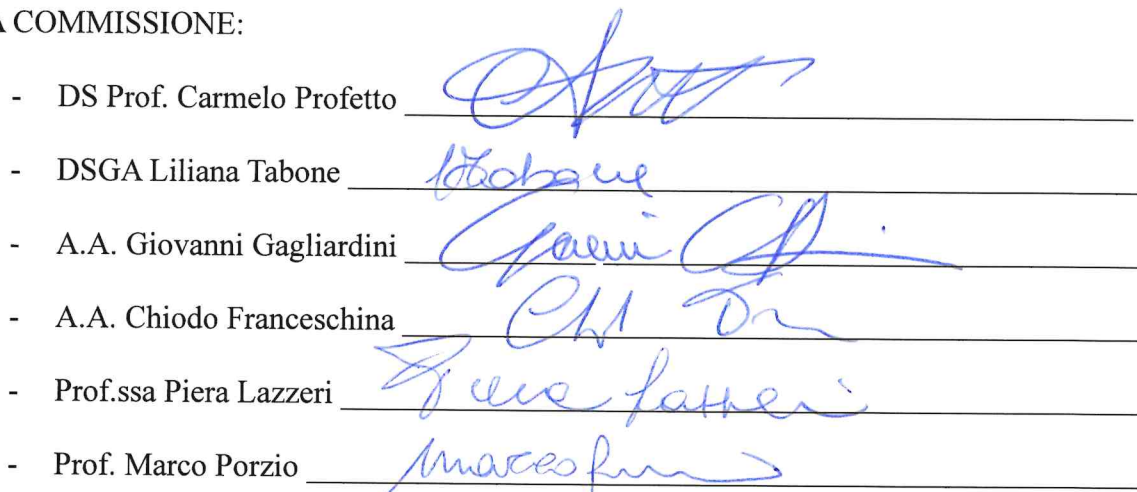 A COMMISSIONE:
- DS Prof. Carmelo Profetto
- DSGA Liliana Tabone
- A.A. Giovanni Gagliardini
- A.A. Chiodo Franceschina
- Prof.ssa Piera Lazzeri
- Prof. Marco Porzio